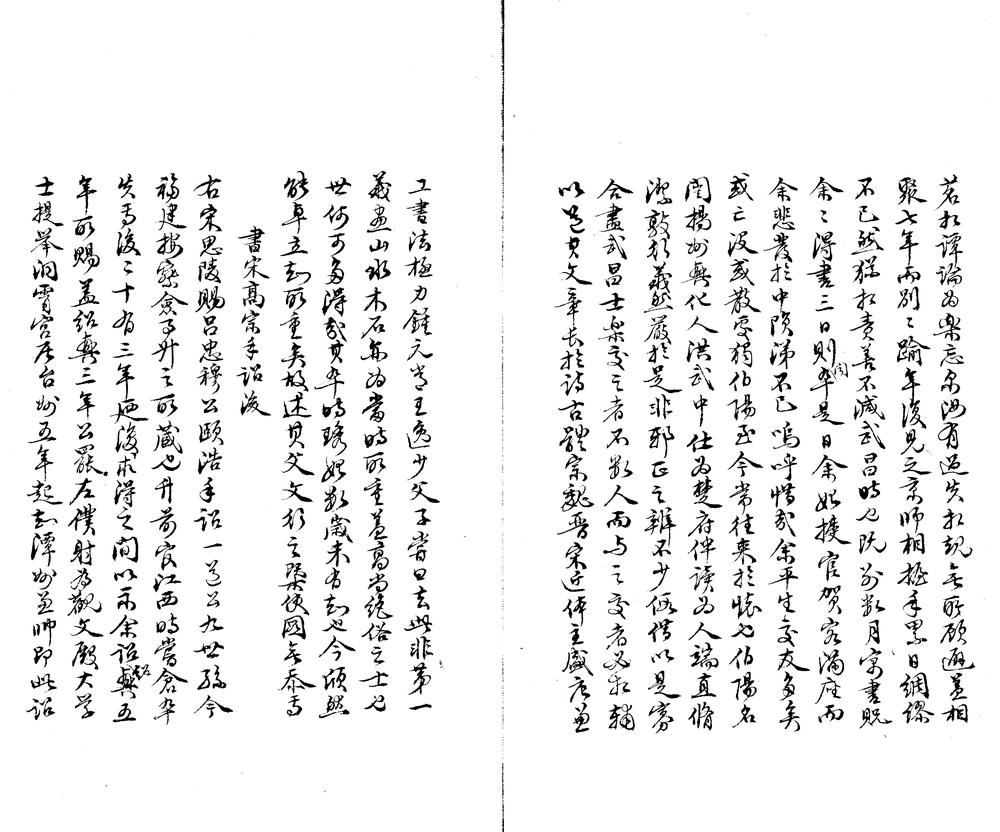 茗相譚論為樂忘爾汝有過失相規無所顧避蓋相
聚七年而別別踰年復見之京師相握手累日綢繆
不已然猶相責善不減武昌時也既別數月寓書貺
余余得書三日則聞卒是日余始授官賀客滿座而
余悲發於中隕涕不已嗚呼惜哉余平生交友多矣
或亡沒或散處獨伯陽至今常往來於懷也伯陽名
閏揚州興化人洪武中仕為楚府伴讀為人端直脩
潔敦於義然嚴於是非邪正之辨不少假借以是寡
合盡武昌士樂交之者不數人而與之交者必相輔
以道其文章長於詩古體宗魏晉宋近体主盛唐兼
工書法極力鍾元常王逸少父子嘗曰去此非第一
義畫山水木石亦為當時所重蓋高尚絕俗之士也
世何可多得哉其卒時琇始數歲未有知也今頎然
能卓立知所重矣故述其父文行之槩使國無忝焉
書宋高宗手詔後
右宋思陵賜呂忠穆公頤浩手詔一道公九世孫今
福建按察僉事升之所藏也升前官江西時嘗倉卒
失焉後二十有三年廼復求得之間以示余詔紹興五
年所賜蓋紹興三年公罷左僕射為觀文殿大學
士提舉洞霄宮居台州五年起知潭州兼帥即此詔